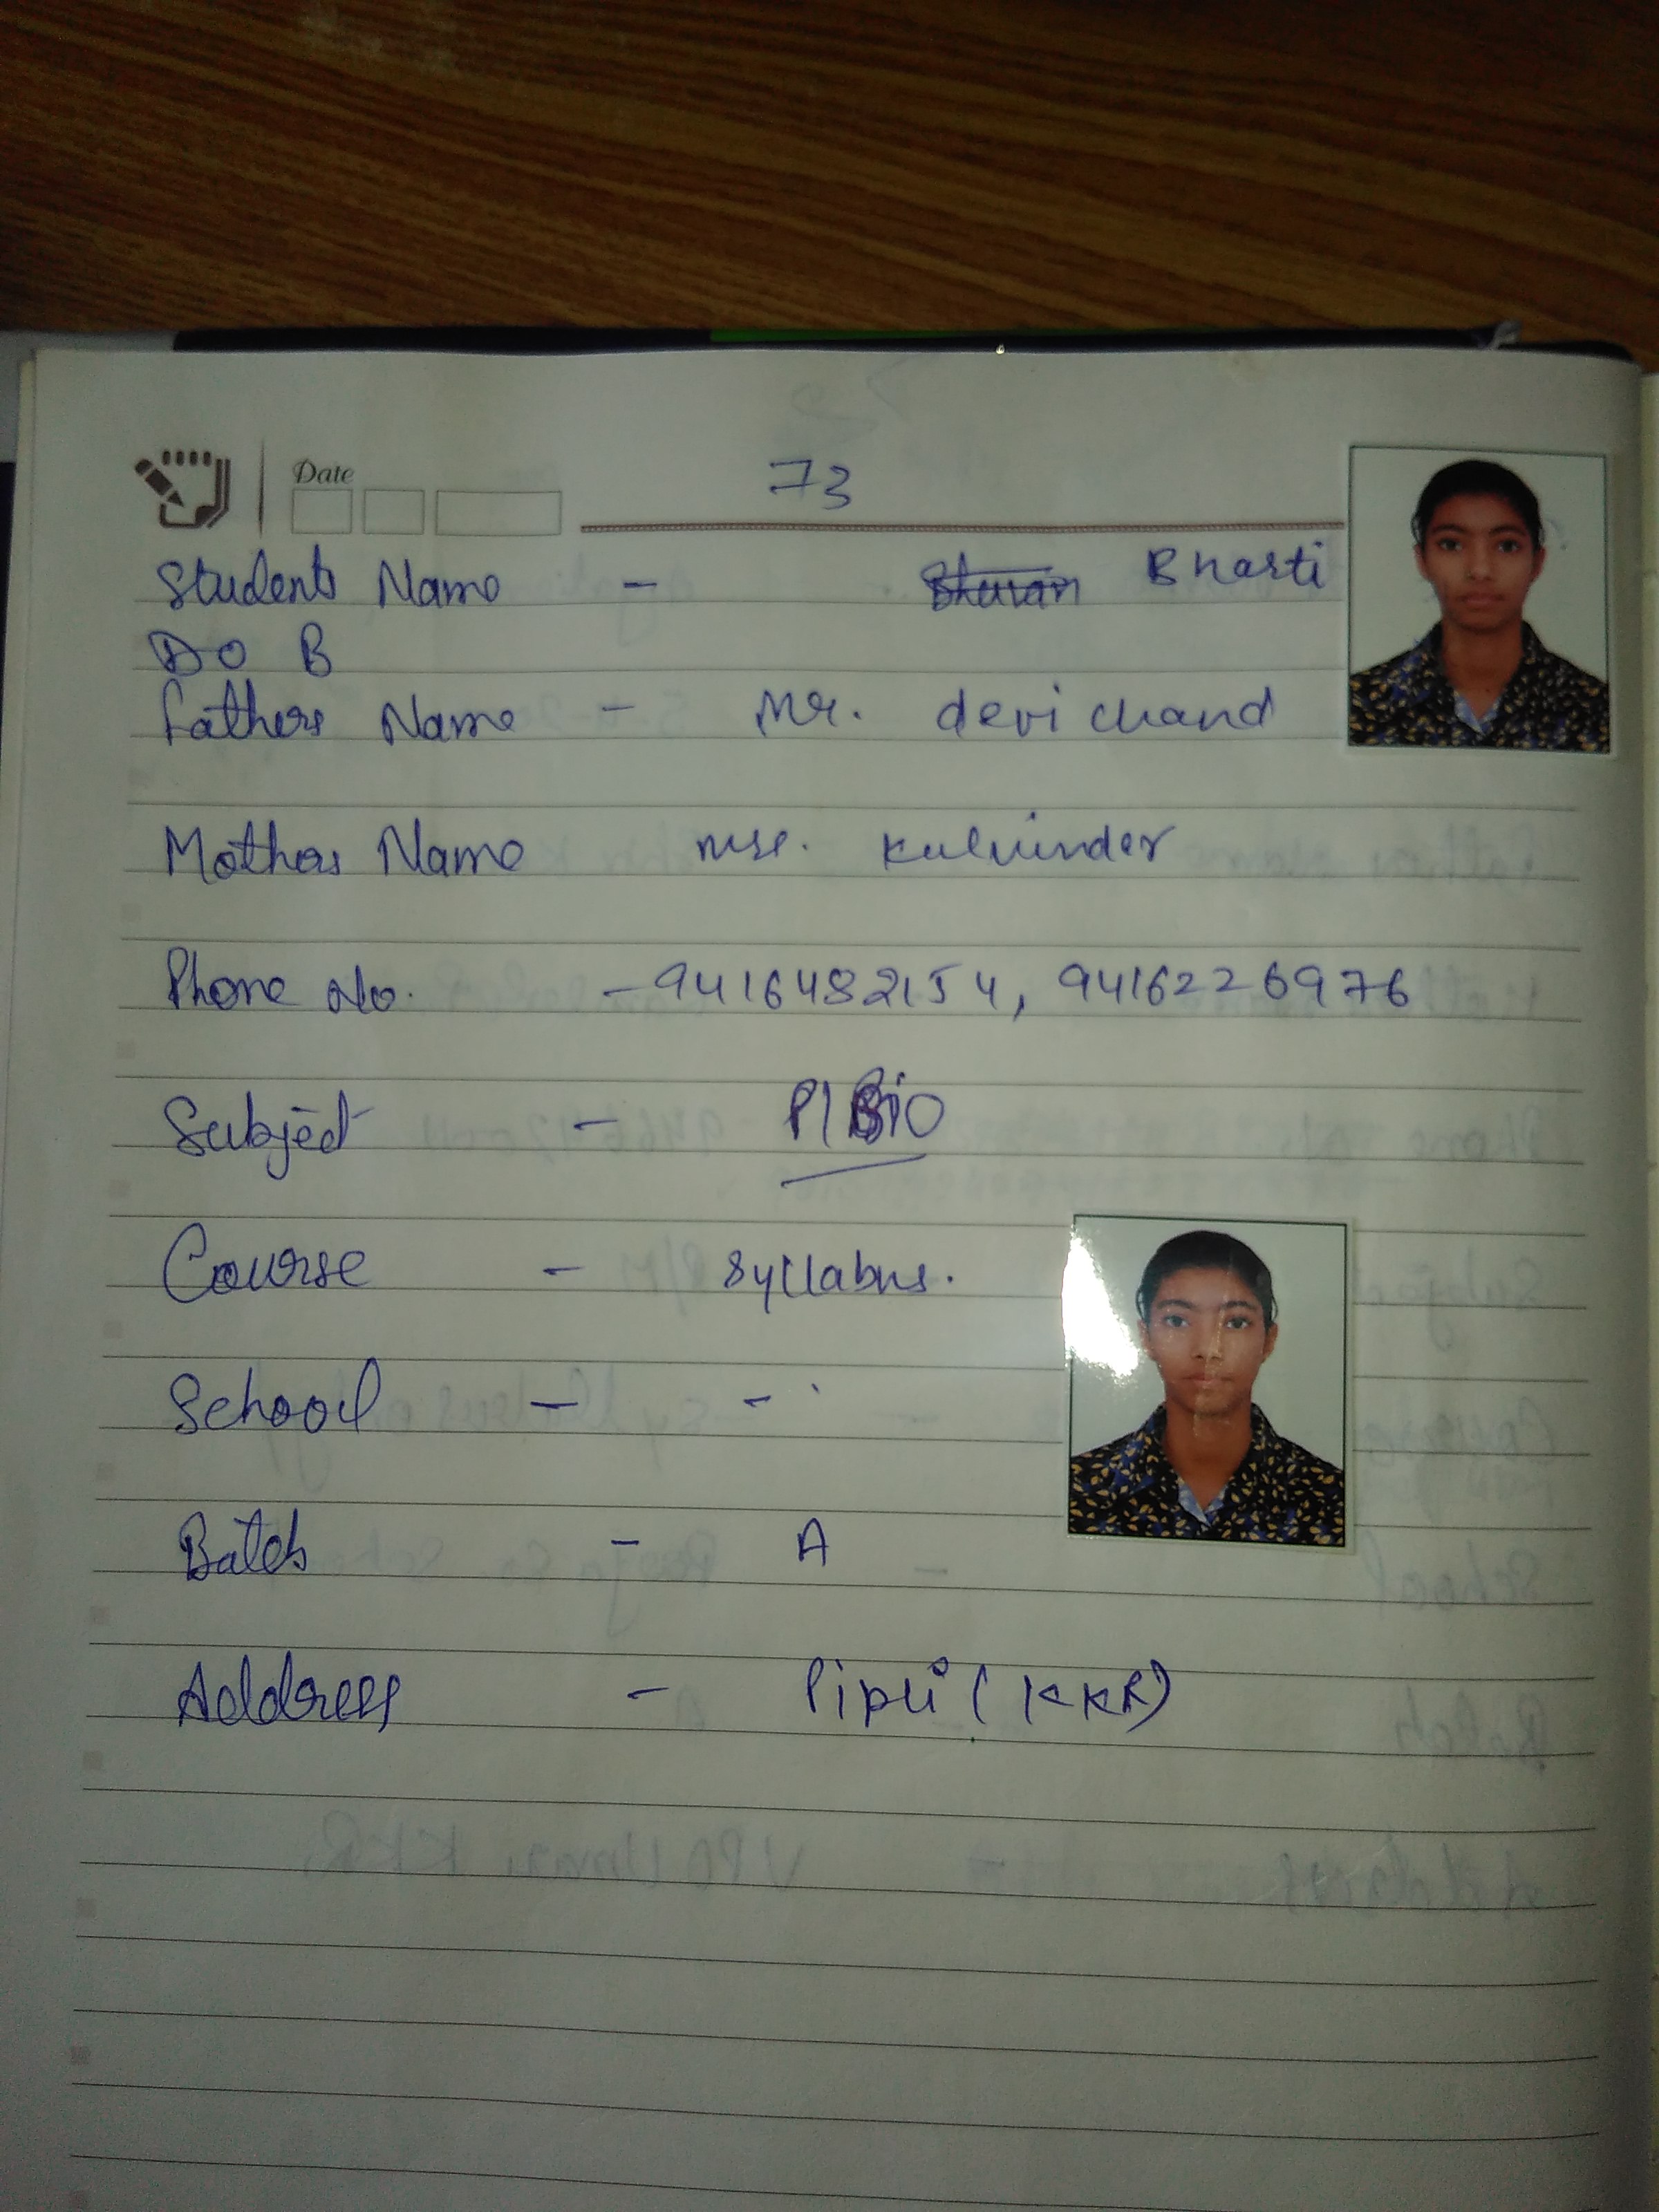 Date
73
Students Name - Bharti
DO B
Fathers Name - Mr. devi chand
Mothers Name Mrs. Kulvinder
Phone No. - 9416482154, 9416226976
Subject - P/Bio
Course - Syllabus.
School - -
Batch - A
Address - Pipli (KKR)